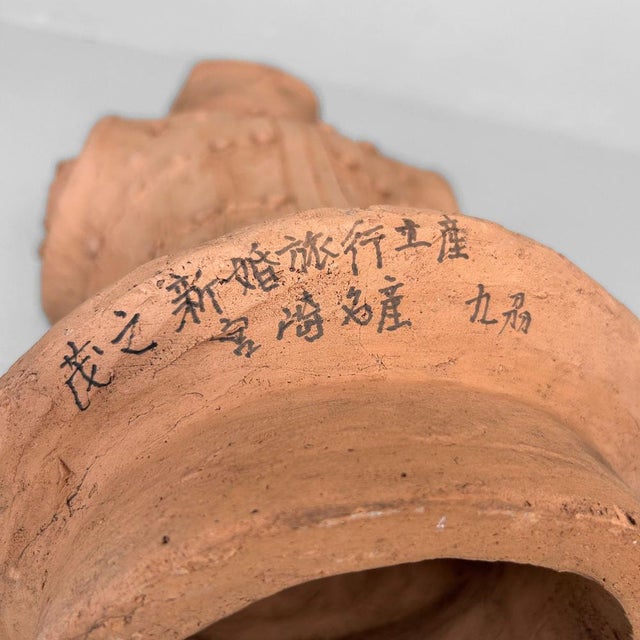 茂之 新婚旅行土産
宮崎名産 九州